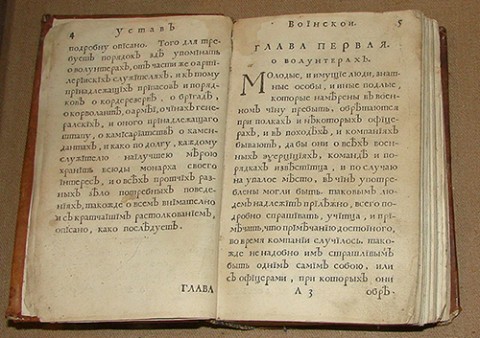 4 УставЪ
подробну описано. Того для тре-
буетЪ порядокЪ здѢ упомянуть
о волунтерахЪ, отЪ части же о арти-
лерїискїхЪ служїтеляхЪ, и кЪ тому
прїнадлежащїхЪ прїпасовЪ и поряд-
ковЪ о кордереверѢ, о брїгадѢ,
о корволантѢ, о армѢї, о чїнахЪ гене-
ралскїхЪ, и оного прїнадлежащего
штапу, о камїсарїатствѢ о камен-
дантахЪ, и како по долгу, каждому
служїтелю наїлучшею мѢрою
хранїть всюды монарха своего
їнтересЪ, и о всѢхЪ протчїхЪ раз-
ныхЪ зѢло потребныхЪ поведе-
нїяхЪ, такожде о всемЪ внїмателно
и сЪ кратчайшїмЪ растолкованїемЪ,
описано, како послѢдуетЪ.
ГЛАВА
Воїнскои. 5
ГЛАВА ПЕРВАЯ.
О ВОЛУНТЕРАХЪ.
Молодые, и їмущїе люди, знат-
ные особы, и иные подлые,
которые намѢрены вЪ воен-
номЪ чїну пребыть, обрѢтаются
при полкахЪ и нѢкоторыхЪ офїце-
рахЪ, и вЪ походѢхЪ, и компанїяхЪ
бываютЪ, да бы они о всѢхЪ воен-
ныхЪ эѯерцїцїахЪ, командЪ и по-
рядкахЪ извѢстїтца, и по случаю
на упалое мѢсто, вЪ чїнЪ употре-
блены могли быть. таковымЪ лю-
демЪ надлежїтЪ прїлѢжно, всего по-
дробно спрашївать, учїтца, и при-
мѢчать, что прїмѢчанїю достоїного,
во время компанїи случїлось. тако-
жде не надобно їмЪ страшлївымЪ
быть однїмЪ самїмЪ собою, или
сЪ офїцерами, при которыхЪ они
А 3 обрѢ-